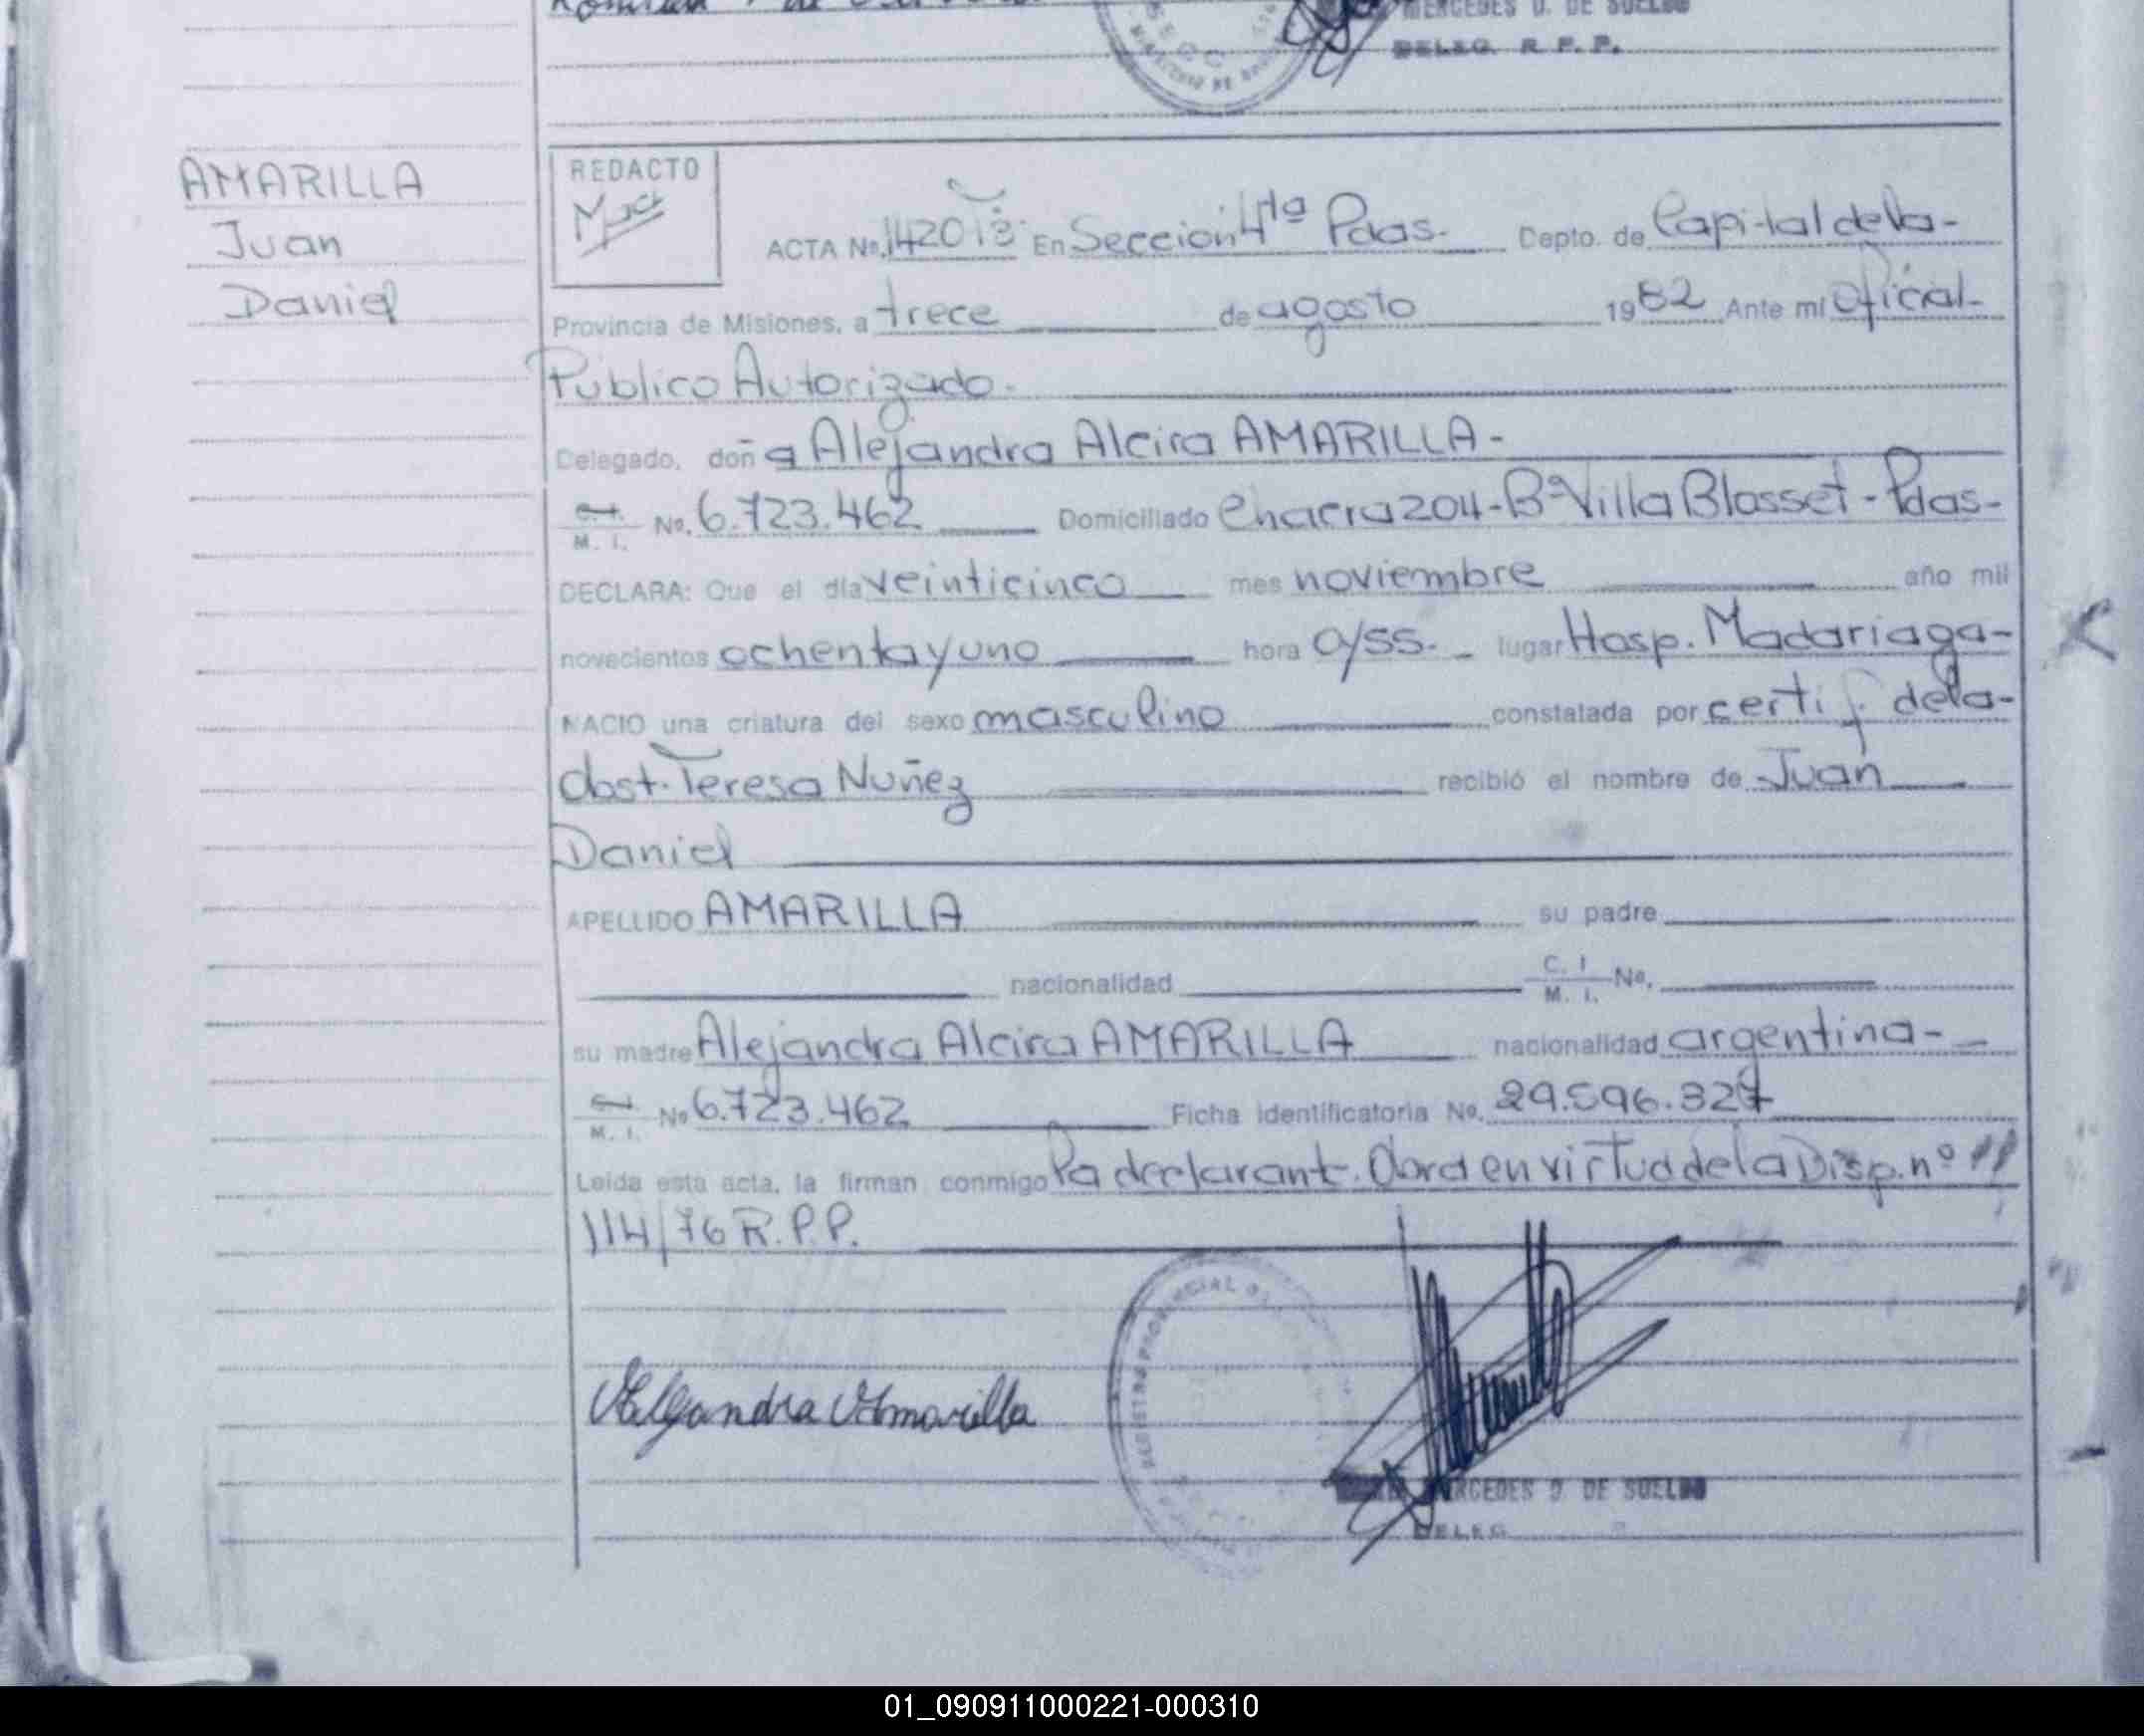 MERCEDES D. DE SUELDO
DELEG. R. P. P.
AMARILLA
Juan
Daniel
REDACTO
ACTA No. 142018 En Sección 4ta Pdas. Depto. de Capital de la-
Provincia de Misiones, a trece de agosto 1982 Ante mí Oficial-
Publico Autorizado.
Delegado, doña Alejandra Alcira AMARILLA-
M. I. No. 6.723.462 Domiciliado Chacra 204-Bº Villa Blosset-Pdas-
DECLARA: Que el día veinticinco mes noviembre año mil
novecientos ochenta y uno hora 0/55.- lugar Hosp. Madariaga-
NACIO una criatura del sexo masculino constatada por certif. de la-
Obst. Teresa Nuñez recibió el nombre de Juan
Daniel
APELLIDO AMARILLA su padre
nacionalidad C. I. M. I. No.
su madre Alejandra Alcira AMARILLA nacionalidad argentina-
M. I. No 6.723.462 Ficha identificatoria No. 29.596.327
Leida esta acta, la firman conmigo la declarant. Obra en virtud de la Disp. nº
114/76 R.P.P.
Alejandra Amarilla
MERCEDES D. DE SUELDO
DELEG
01_090911000221-000310